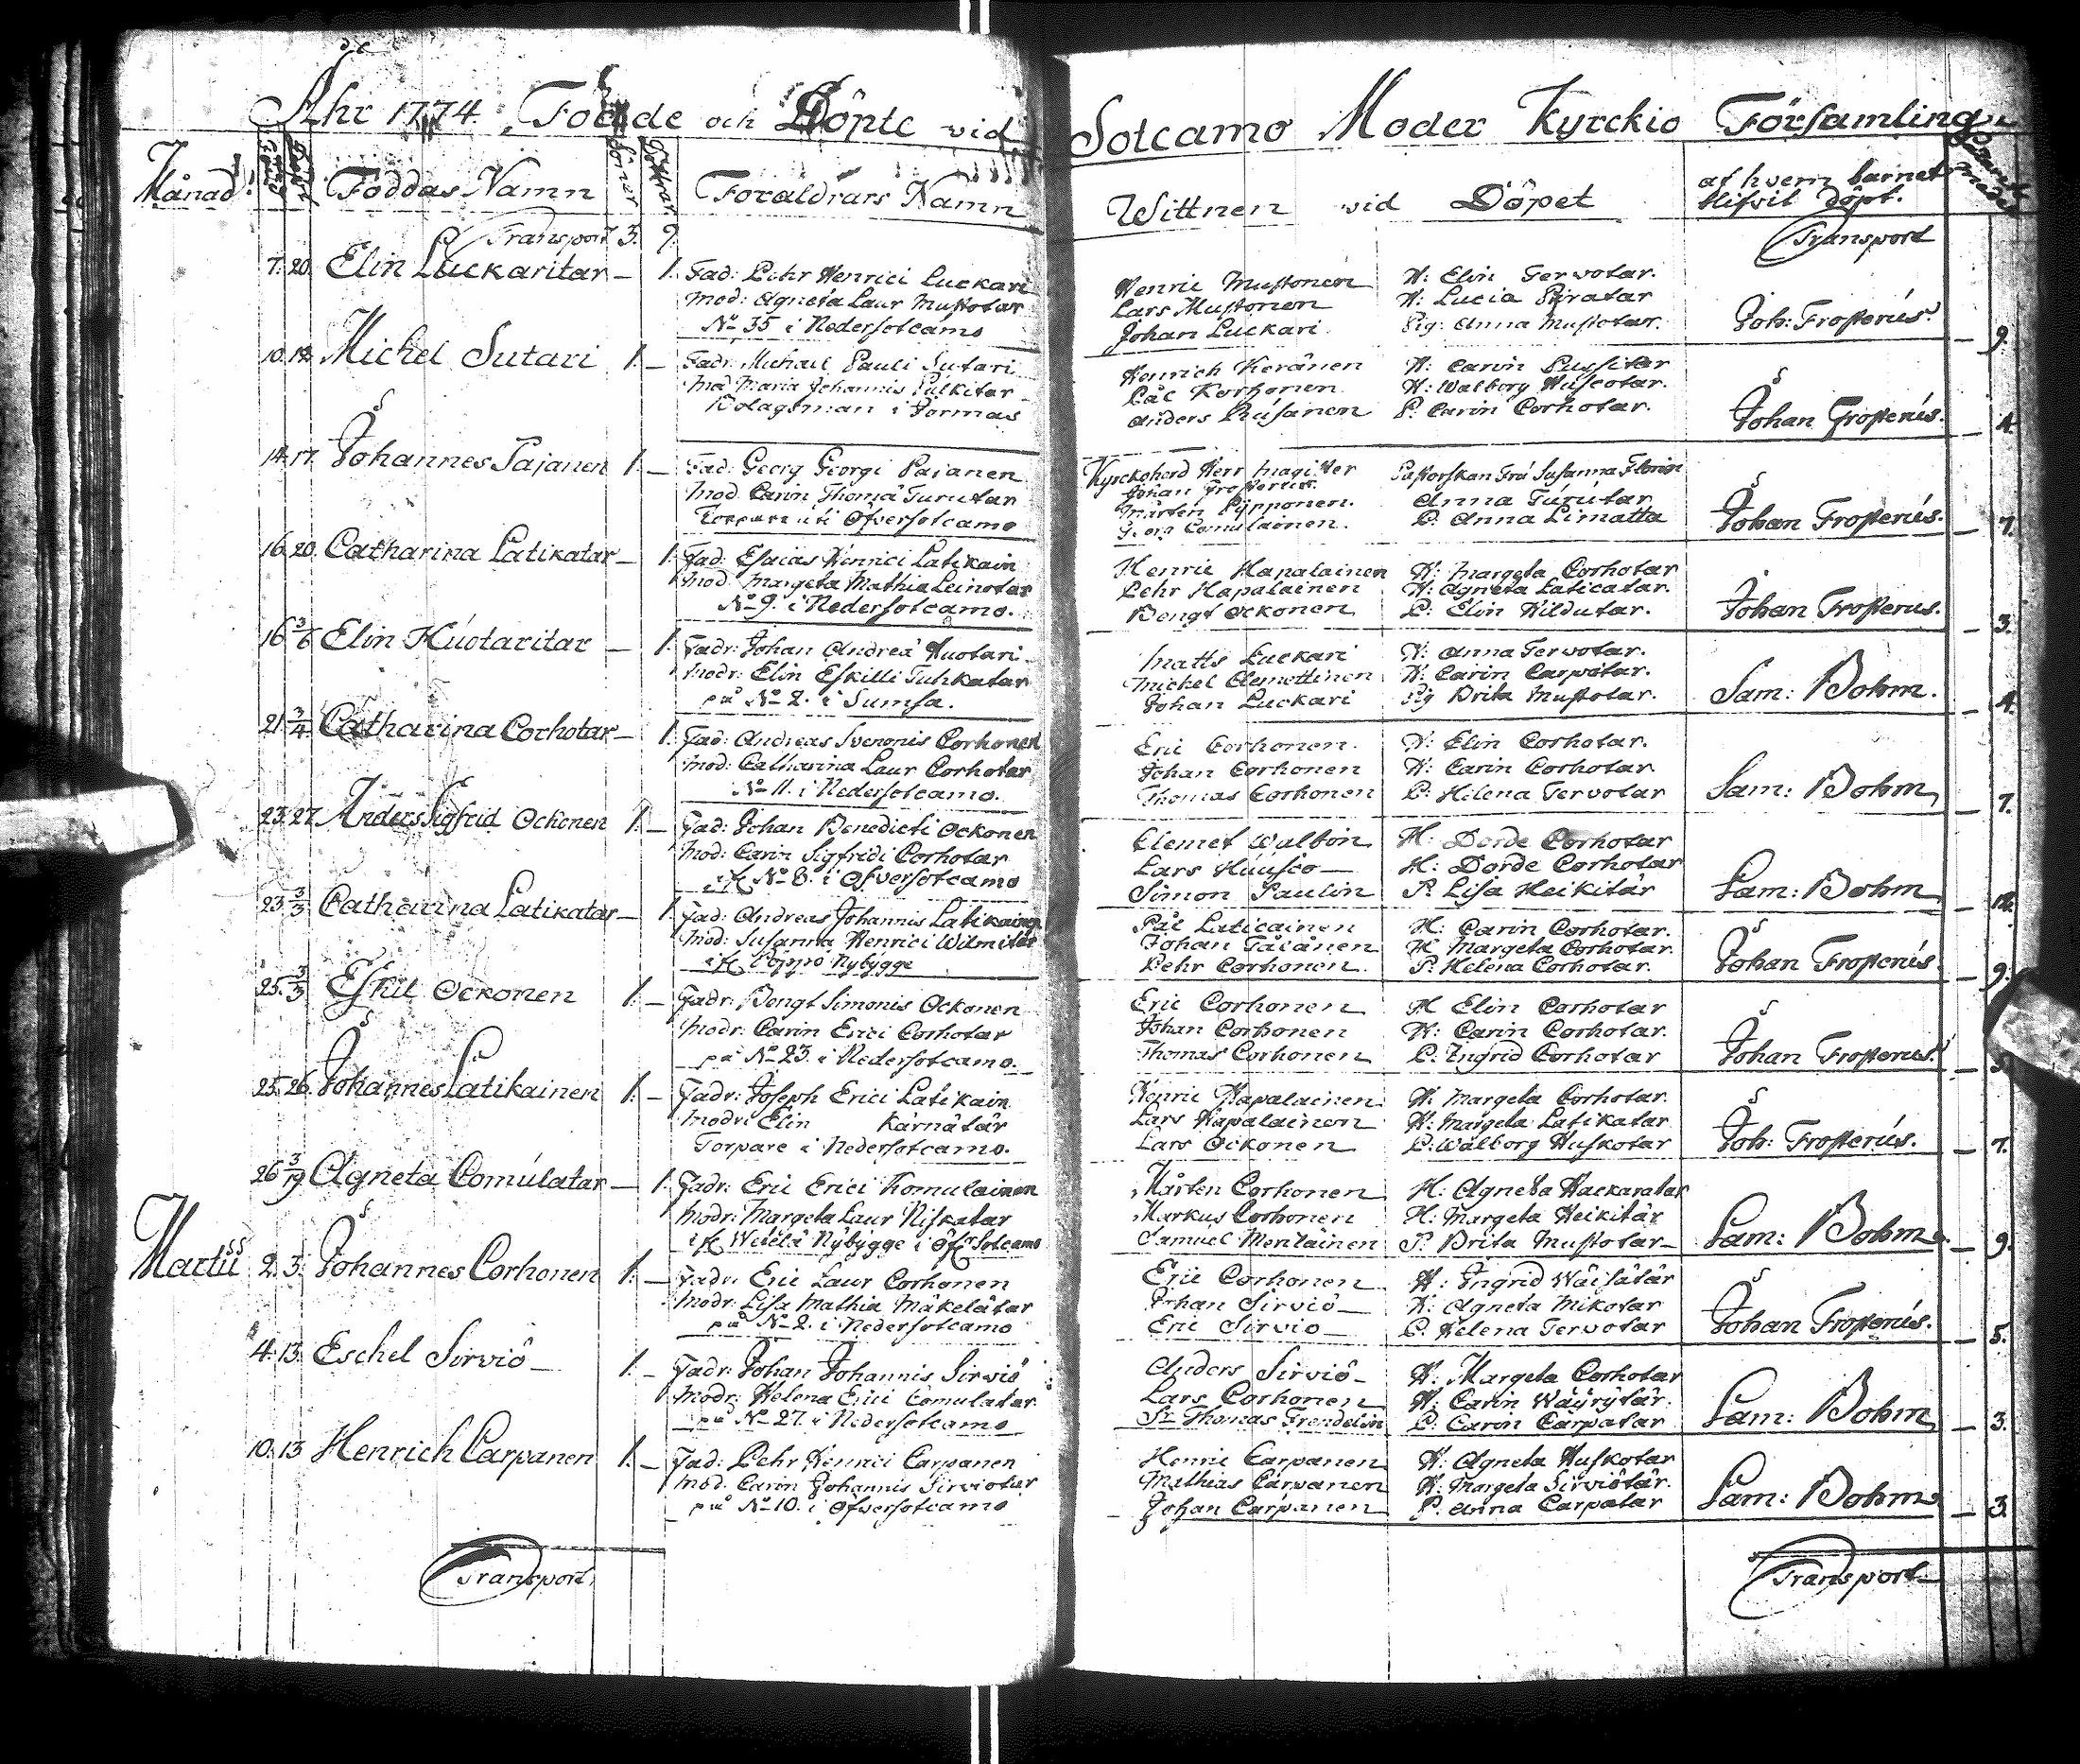 Åhr 1774. Födde och Döpte vid
Månad
Föddas Namn
Söner
Döttrar
Föraldrars Namn
Transport 3. 9.
7. 20. Elin Luckaritar — 1. Fad: Pehr Henrici Luckari
Mod: Agneta Laur Mustotar
No 35 i Nedersotcamo
10. 12. Michel Sutari 1. — Fadr: Michael Pauli Sutari
Mod Maria Johannis Pulkitar
Bolagsman i Jormas
14. 17. Johannes Pajanen 1. — Fad: Georg Georgi Pajanen
Mod: Carin Thomæ Turutar
Torpare uti Öfversotcamo
16. 20. Catharina Latikatar — 1. Fad: Esaias Henrici Latikain
Mod: Margeta Mathiæ Leinotar
No 9. i Nedersotcamo.
16 3/6 Elin Huotaritar — 1. Fadr: Johan Andreæ Huotari.
Modr: Elin Eskilli Tuhkatar
på No 2. i Sumsa.
21 3/4 Catharina Corhotar — 1. Fad: Andreas Svenonis Corhonen
Mod: Catharina Laur Corhotar
No 11. i Nedersotcamo.
23. 27. Anders Sigfrid Ockonen 1. — Fad: Johan Benedicti Ockonen
Mod: Carin Sigfridi Corhotar
No 8. i Öfversotcamo
23. 3/3 Catharina Latikatar — 1. Fad: Andreas Johannis Latikaing
Mod: Susanna Henrici Wilmitär
Nybygge
25. 3/3 Eskil Ockonen 1. — Fadr: Bengt Simonis Ockonen
Modr: Carin Erici Corhotar
på No 23. i Nedersotcamo.
25. 26. Johannes Latikainen 1. — Fadr: Joseph Erici Latikain
Modr: Elin Kärnätär
Torpare i Nedersotcamo.
26 3/19 Agneta Comulatar — 1. Fadr: Eric Erici Komulainen
Modr: Margeta Laur Niskatar
Nybygge i Öfr Sotcamo
Martii 2. 3. Johannes Corhonen 1. — Fadr: Eric Laur Corhonen
Modr: Lisa Mathiæ Mäkelätar
på No 2. i Nedersotcamo
4. 13. Eschel Sirviö — 1. — Fadr: Johan Johannis Sirviö
Modr: Helena Erici Comulatar
på No 27. i Nedersotcamo
10. 13. Henrich Carpanen 1. — Fad: Pehr Henrici Carpanen
Mod. Carin Johannis Sirviotar
på No 10. i Öfversotcamo
Transport.
Sotcamo Moder Kyrckio Församling
Wittnen vid Döpet
af hvem barnet
blifvit döpt.
Transport
Henric Mustonen H: Elin Tervotar.
Lars Mustonen H: Lucia Piratar
Johan Luckari Pig: Anna Mustotar. Joh: Frosterus. — 9.
Henrich Keränen H: Carin Pussitar
Pål Korhonen H: Walborg Huscotar.
Anders Rusanen P: Carin Corhotar. Johan Frosterus. — 4.
Kyrckoherd Herr Magister Pastorskan Fru Susanna Florin
Johan Frosterus Anna Turutar
Mårten Pipponen. P: Anna Limatta
Georg Comulainen. Johan Frosterus. — 7.
Henric Hapalainen H: Margeta Corhotar
Pehr Hapalainen H: Agneta Laticatar.
Bengt Ockonen P: Elin Kildutar. Johan Frosterus. — 3.
Matts Luckari H: Anna Tervotar.
Michel Clemettinen H: Carin Carpatar.
Johan Luckari Pig Brita Mustotar. Sam: Bohm. — 4.
Eric Corhonen. H: Elin Corhotar.
Johan Corhonen H: Carin Corhotar.
Thomas Corhonen P: Helena Tervotar Sam: Bohm — 7.
Clemet Walbon H: Dorde Corhotar
Lars Huusco — H: Dorde Corhotar
Simon Paulin P. Lisa Heikitär Sam: Bohm —
Pål Laticainen H: Carin Corhotar.
Johan Tälänen H: Margeta Corhotar.
Pehr Corhonen P. Helena Corhotar. Johan Frosterus. — 9.
Eric Corhonen H Elin Corhotar
Johan Corhonen H: Carin Corhotar.
Thomas Corhonen P: Ingrid Corhotar Johan Frosterus.
Henric Hapalainen H: Margeta Corhotar.
Lars Hapalainen H: Margeta Latikatar
Lars Ockonen P: Walborg Huskotar Joh: Frosterus. — 7.
Mårten Corhonen H: Agneta Hackaratar
Markus Corhonen H: Margeta Heikitär
Samuel Merilainen P. Brita Mustotar — Sam: Bohm. — 9.
Eric Corhonen H: Ingrid Wäisätär
Johan Sirviö — H: Agneta Mikotar
Eric Sirvio — P. Helena Tervotar Johan Frosterus. — 5.
Anders Sirviö — H: Margeta Corhotar
Lars Corhonen H: Carin Wäyrytär.
Sr Thomas Frendelin P: Carin Carpatar Sam: Bohm — 3.
Henric Carpanen H: Agneta Huskotar
Mathias Carpanen H: Margeta Sirviötär.
Johan Carpanen P. Anna Carpatar Sam: Bohm — 3.
Transport